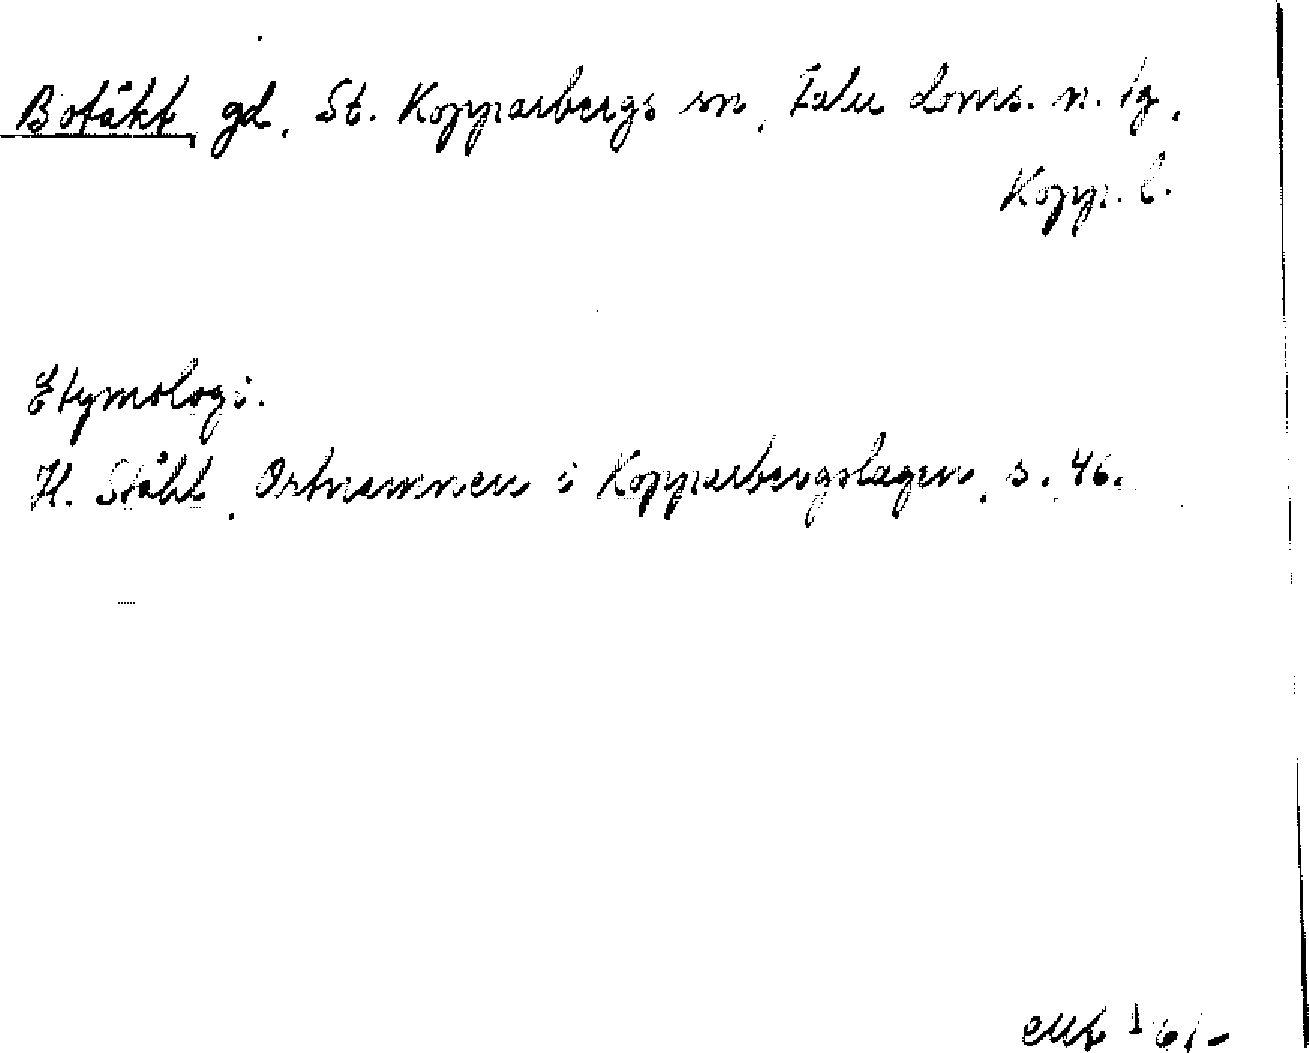 Botäkt, gd, St. Kopparbergs sn, Falu doms. n. tg,
Kopp. l.
Etymologi.
H. Ståhl, Ortnamnen i Kopparbergslagen, s. 46.